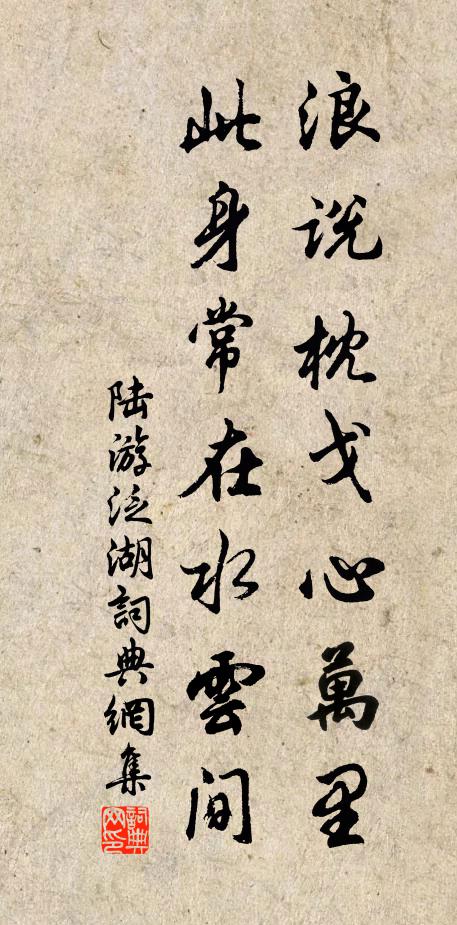 浪说枕戈心萬里
此身常在水雲间
陆游泛湖詞典網集
詞典網印